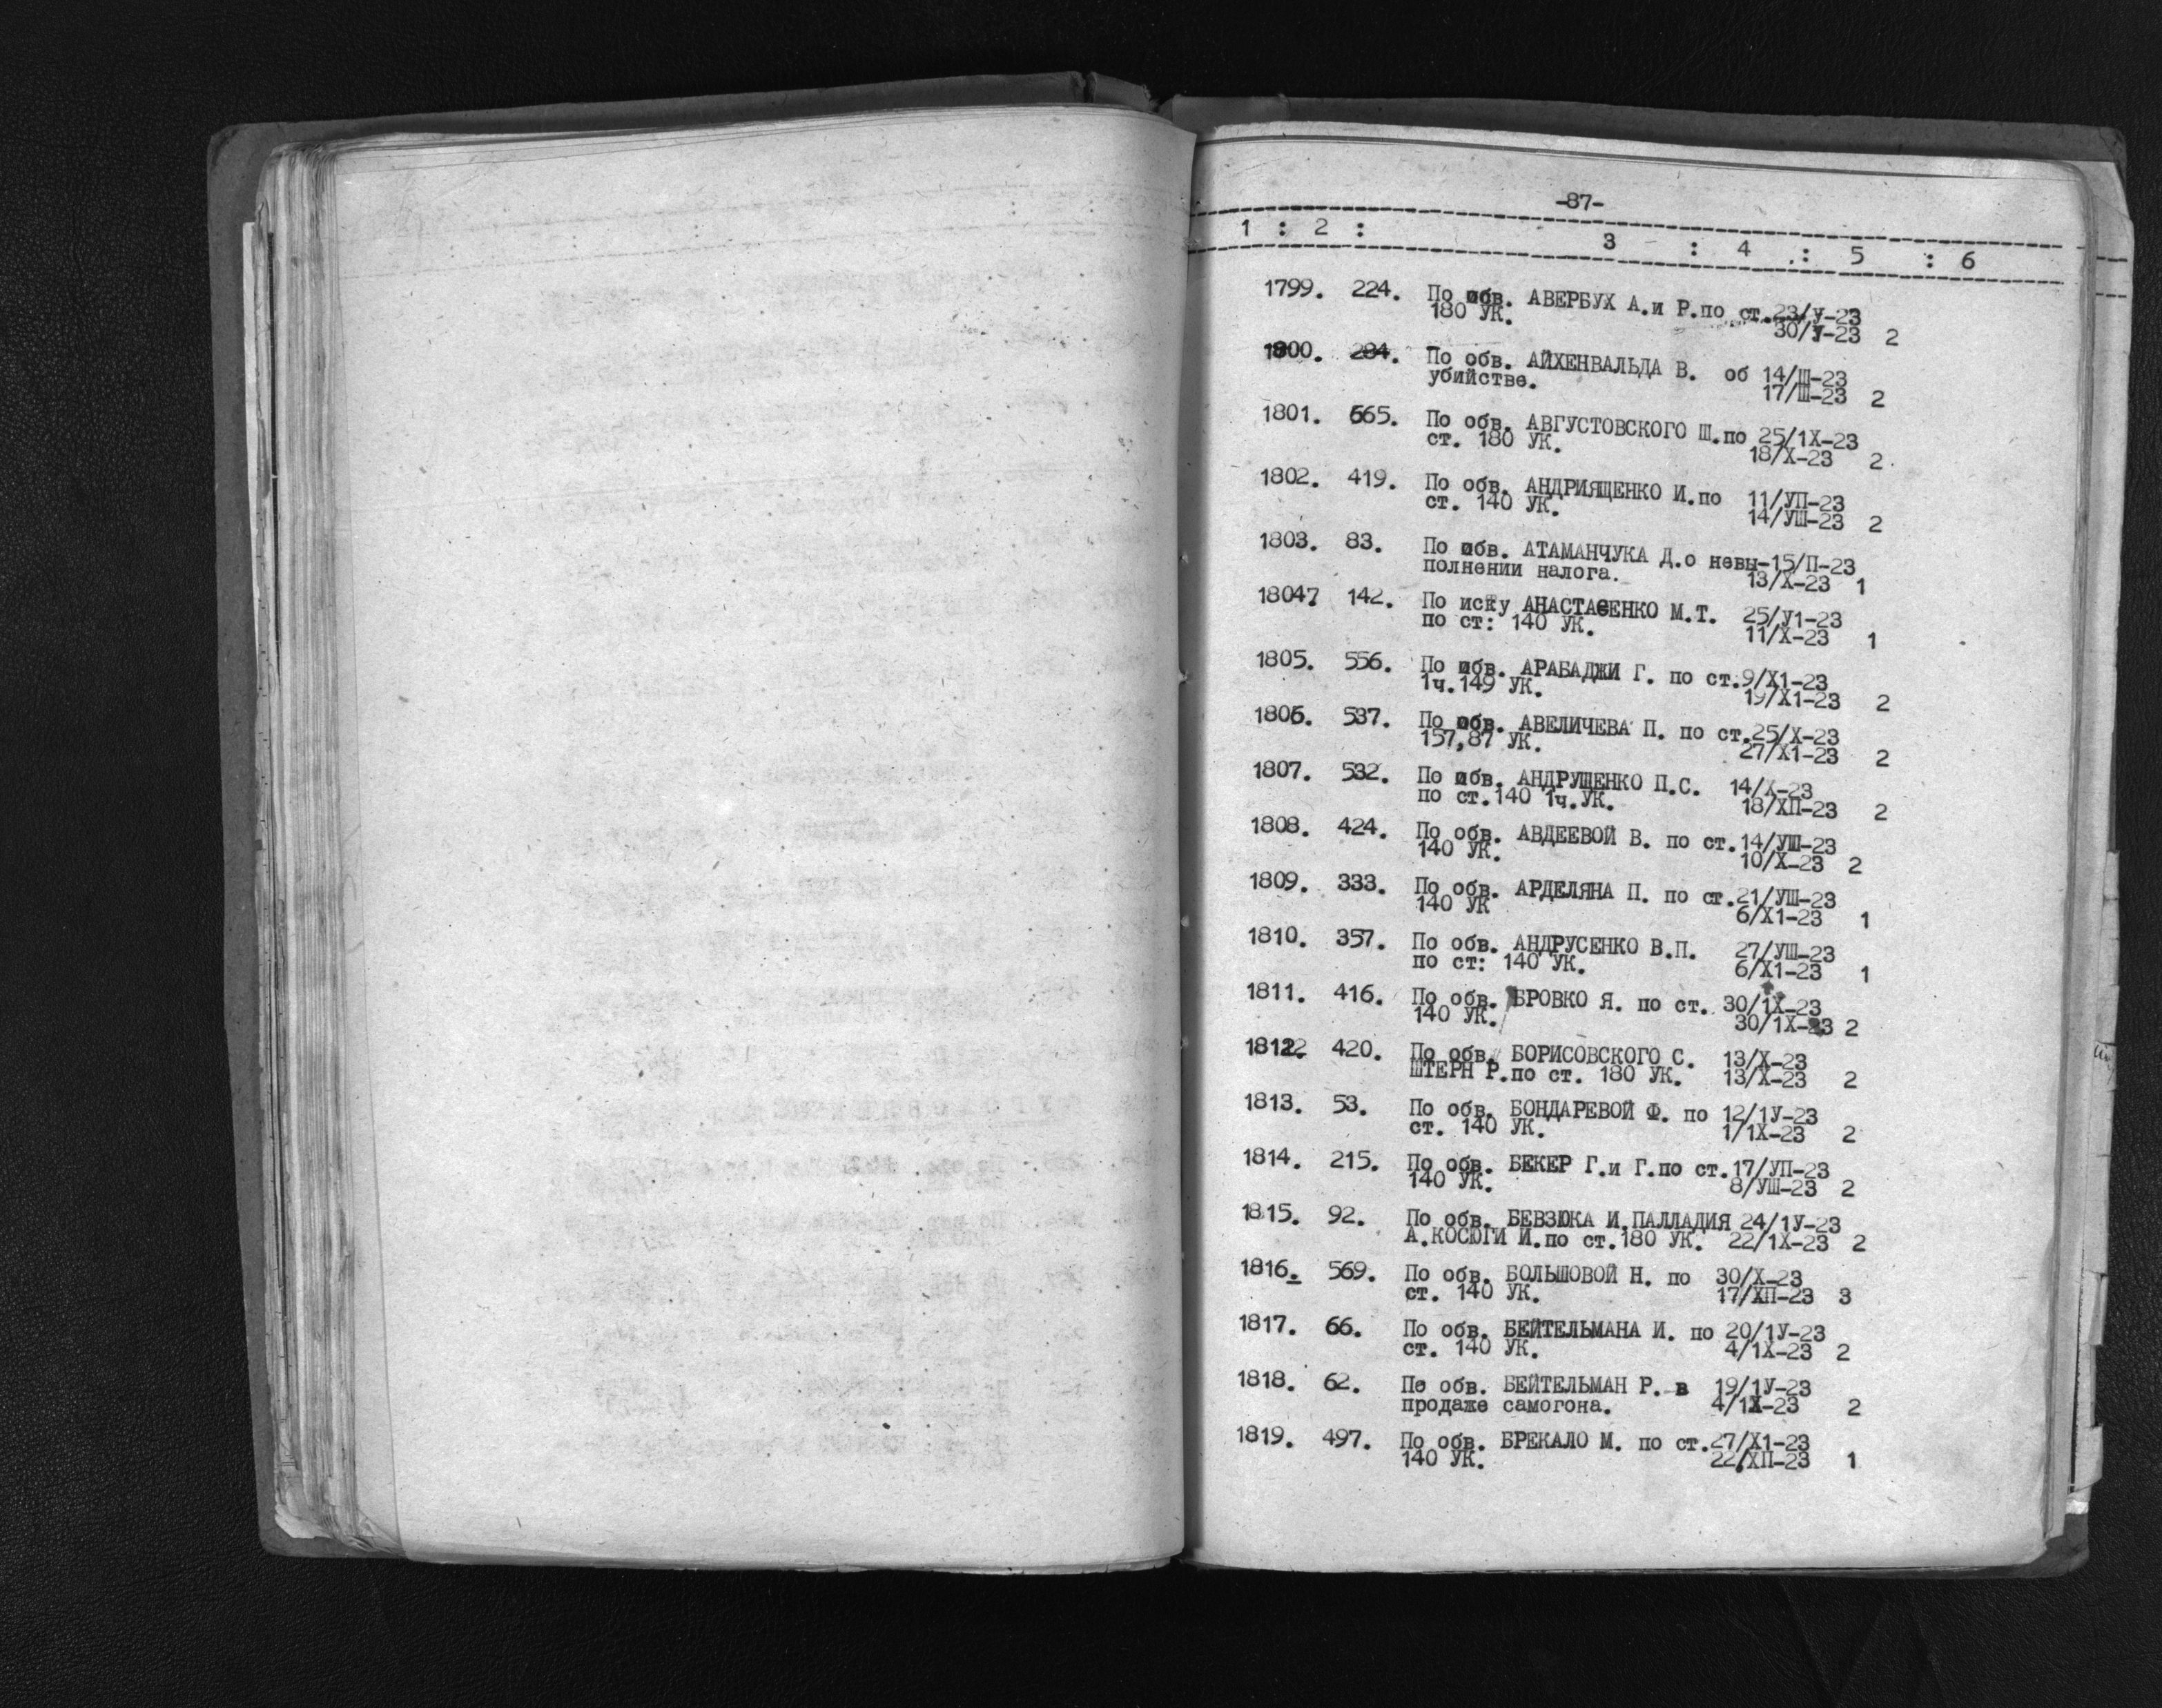 -87-
1 : 2 : 3 : 4 : 5 : 6
1799. 224. По обв. АВЕРБУХ А.и Р.по ст.23/У-23
180 УК. 30/У-23 2
1800. 284. По обв. АЙХЕНВАЛЬДА В. об 14/Ш-23
убийстве. 17/Ш-23 2
1801. 665. По обв. АВГУСТОВСКОГО Ш.по 25/1Х-23
ст. 180 УК. 18/Х-23 2
1802. 419. По обв. АНДРИЯЩЕНКО И.по 11/УП-23
ст. 140 УК. 14/УШ-23 2
1803. 83. По обв. АТАМАНЧУКА Д.о невы-15/П-23
полнении налога. 13/Х-23 1
1804. 142. По иску АНАСТАСЕНКО М.Т. 25/У1-23
по ст: 140 УК. 11/Х-23 1
1805. 556. По обв. АРАБАДЖИ Г. по ст.9/Х1-23
1ч.149 УК. 19/Х1-23 2
1806. 537. По обв. АВЕЛИЧЕВА П. по ст.25/Х-23
157,87 УК. 27/Х1-23 2
1807. 532. По обв. АНДРУЩЕНКО П.С. 14/Х-23
по ст.140 1ч.УК. 18/ХП-23 2
1808. 424. По обв. АВДЕЕВОЙ В. по ст.14/УШ-23
140 УК. 10/Х-23 2
1809. 333. По обв. АРДЕЛЯНА П. по ст.21/УШ-23
140 УК 6/Х1-23 1
1810. 357. По обв. АНДРУСЕНКО В.П. 27/УШ-23
по ст: 140 УК. 6/Х1-23 1
1811. 416. По обв. БРОВКО Я. по ст. 30/1Х-23
140 УК. 30/1Х-23 2
1812. 420. По обв. БОРИСОВСКОГО С. 13/Х-23
ШТЕРН Р.по ст. 180 УК. 13/Х-23 2
1813. 53. По обв. БОНДАРЕВОЙ Ф. по 12/1У-23
ст. 140 УК. 1/1Х-23 2
1814. 215. По обв. БЕКЕР Г.и Г.по ст.17/УП-23
140 УК. 8/УШ-23 2
1815. 92. По обв. БЕВЗЮКА И.ПАЛЛАДИЯ 24/1У-23
А.КОСЮГИ И.по ст.180 УК. 22/1Х-23 2
1816. 569. По обв. БОЛЬШОВОЙ Н. по 30/Х-23
ст. 140 УК. 17/ХП-23 3
1817. 66. По обв. БЕЙТЕЛЬМАНА И. по 20/1У-23
ст. 140 УК. 4/1Х-23 2
1818. 62. По обв. БЕЙТЕЛЬМАН Р. в 19/1У-23
продаже самогона. 4/1Х-23 2
1819. 497. По обв. БРЕКАЛО М. по ст.27/Х1-23
140 УК. 22/ХП-23 1